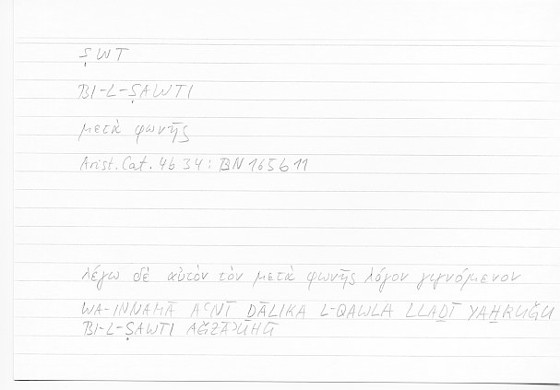 ṢWT
BI-L-ṢAWTI
μετὰ φωνῆς
Arist. Cat. 4b 34 : BN 165b11
λέγω δὲ αὐτὸν τὸν μετὰ φωνῆς λόγον γιγνόμενον
WA-INNAMĀ AʿNĪ ḎĀLIKA L-QAWLA LLAḎĪ YAḪRUǦU
BI-L-ṢAWTI AǦZĀʾUHŪ